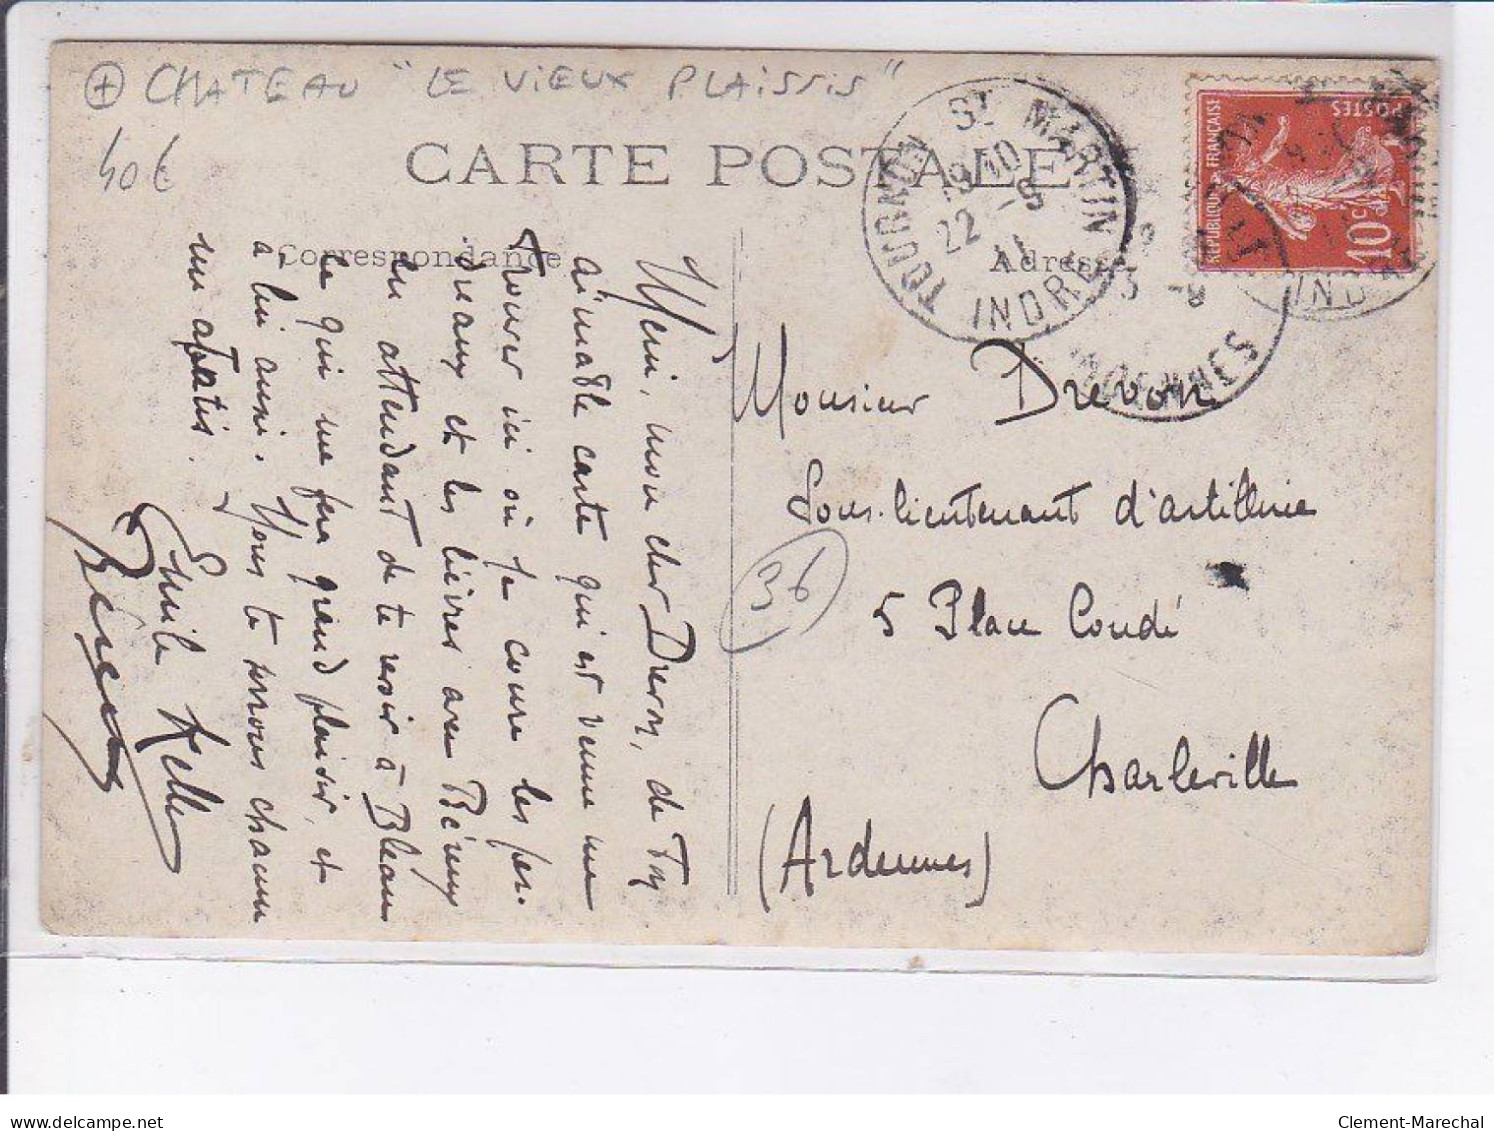 CHATEAU "LE VIEUX PLAISSIS"
40€
CARTE POSTALE
Correspondance
Adresse
TOURNON ST MARTIN
19 10
22 - 9
11
INDRE
ARDENNES
INDRE
RÉPUBLIQUE FRANÇAISE
POSTES
10c
Merci, mon cher Drevon, de ton
aimable carte qui est venue me
trouver ici où je cours les per-
dreaux et les lièvres avec Rémy
en attendant de te revoir à Bleau
ce qui me fera grand plaisir, et
à lui aussi. Nous te serrons chacun
un abatis.
Emile Kelle
Rémy
36
Monsieur Drevon
Sous-lieutenant d'artillerie
5 Place Condé
Charleville
(Ardennes)
Clement-Marechal
delcampe.net